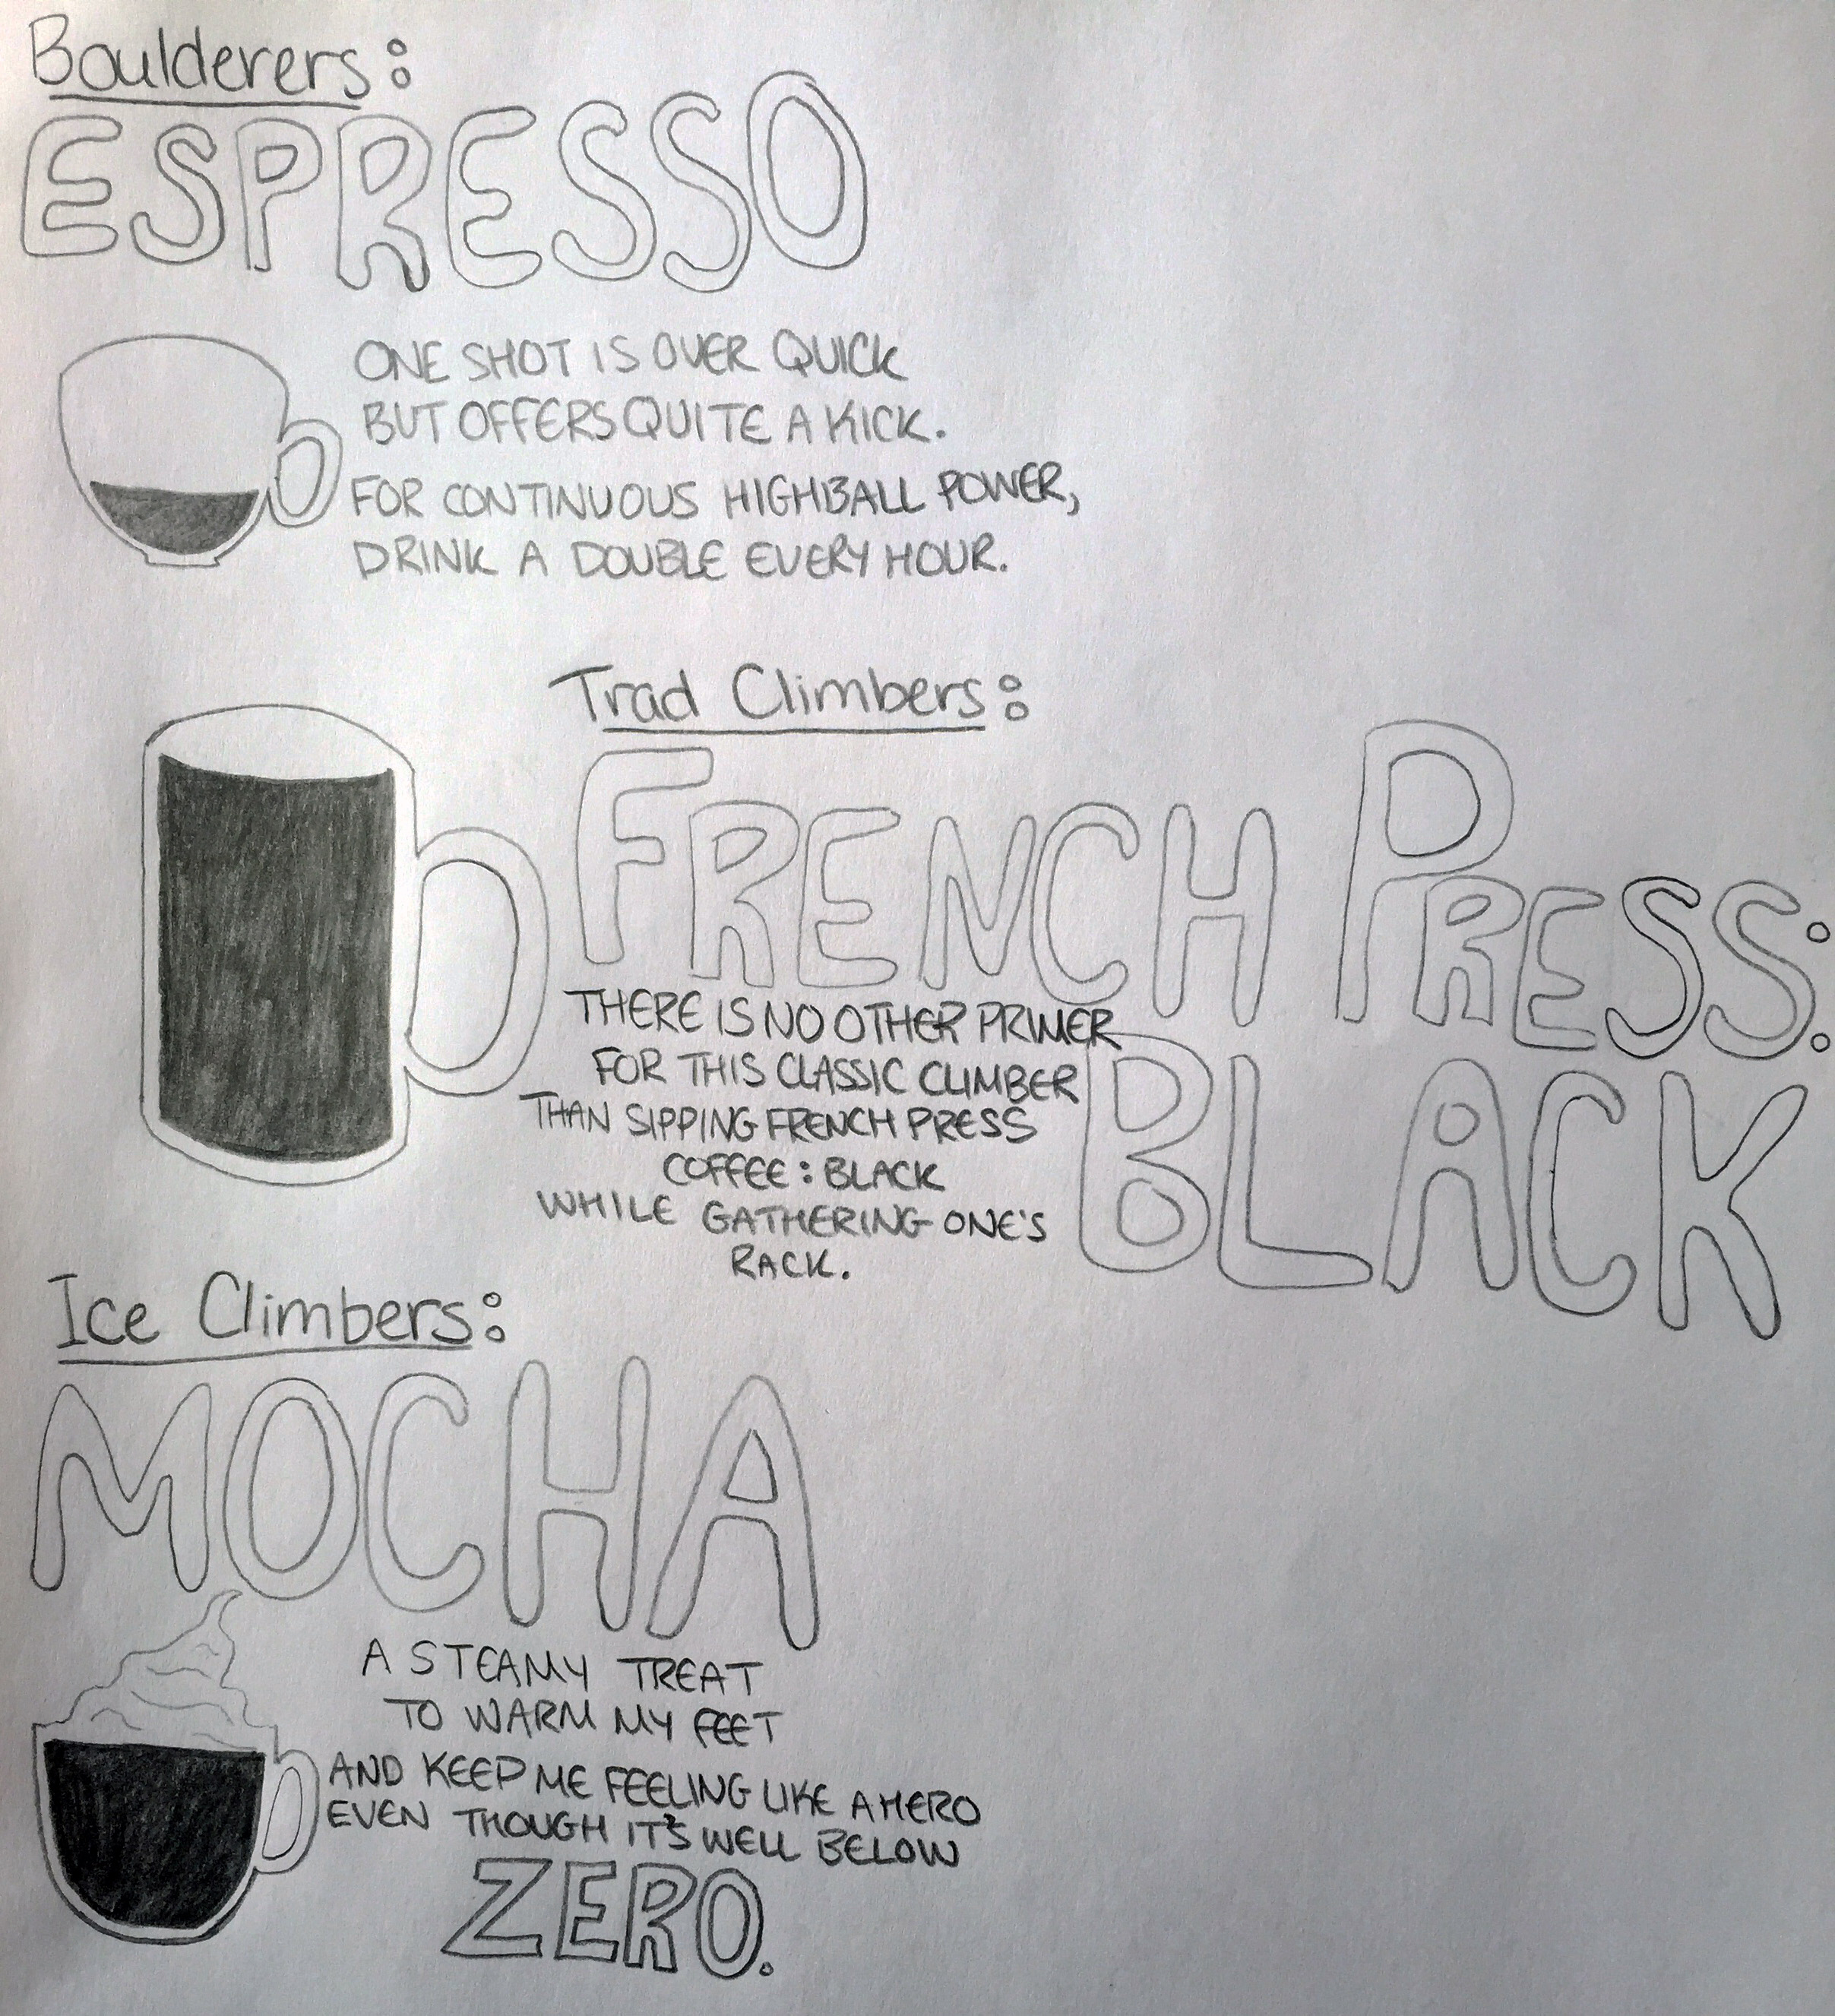 Boulderers:
ESPRESSO
ONE SHOT IS OVER QUICK
BUT OFFERS QUITE A KICK.
FOR CONTINUOUS HIGHBALL POWER,
DRINK A DOUBLE EVERY HOUR.
Trad Climbers:
FRENCH PRESS:
BLACK
THERE IS NO OTHER PRIMER
FOR THIS CLASSIC CLIMBER
THAN SIPPING FRENCH PRESS
COFFEE: BLACK
WHILE GATHERING ONE'S
RACK.
Ice Climbers:
MOCHA
A STEAMY TREAT
TO WARM MY FEET
AND KEEP ME FEELING LIKE A HERO
EVEN THOUGH IT'S WELL BELOW
ZERO.